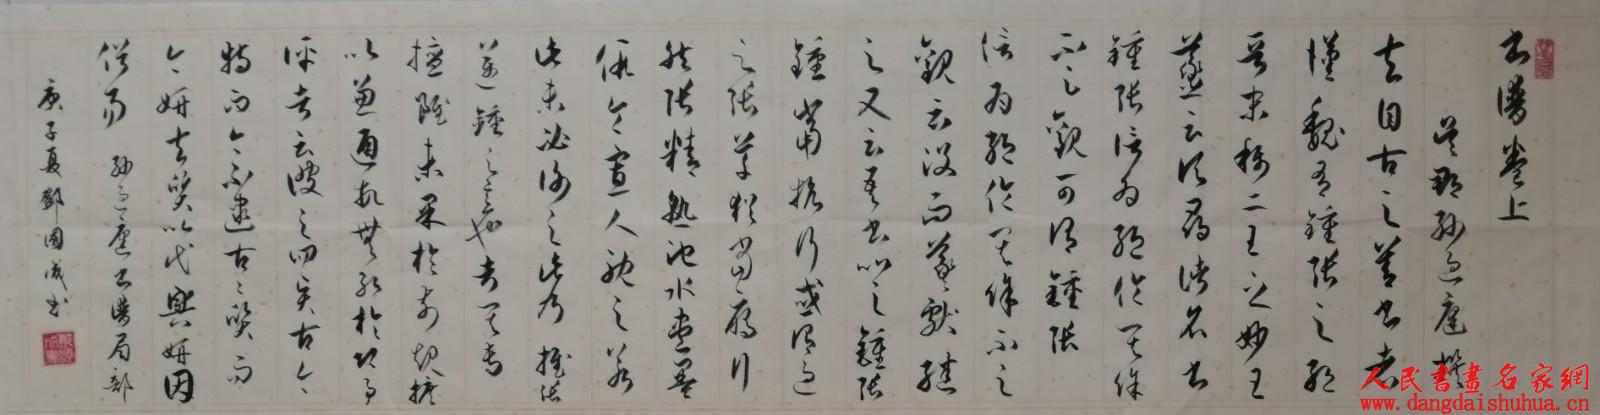 書譜卷上
吳郡孫過庭撰
夫自古之善書者
漢魏有鍾張之絕
晉末稱二王之妙王
羲之云頃尋諸名書
鍾張信為絕倫其餘
不足觀可謂鍾張
信為絕倫其餘不足
觀云沒而羲獻繼
之又云吾書比之鍾張
鍾當抗行或謂過
之張草猶當雁行
然張精熟池水盡墨
假令寡人耽之若
此未必謝之此乃推張
邁鍾之意也考其專
擅雖未果於前規摭
以兼通故無慚於即事
評者云彼之四賢古今
特而今不逮古古質而
今妍夫質以代興妍因
俗易 孫過庭書譜局部
庚子夏鄧國成書
人民書畫名家網
www.dangdaishuhua.cn